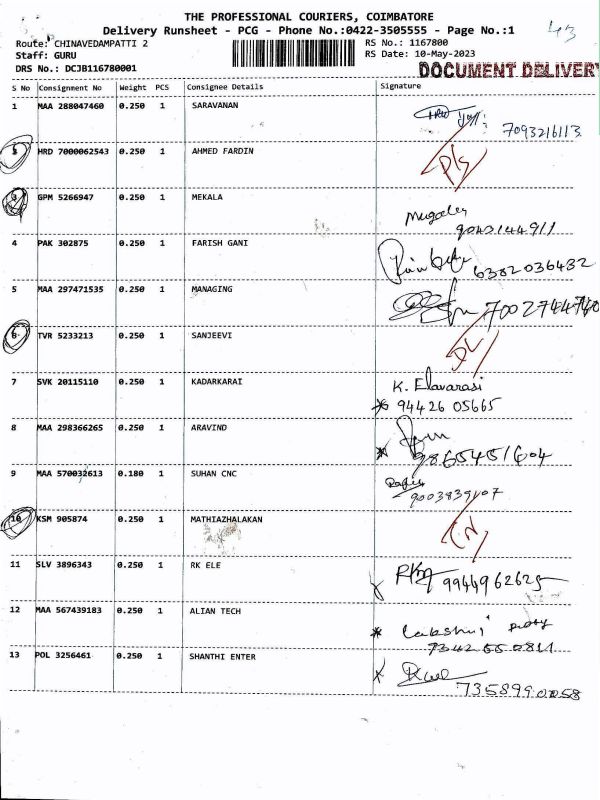 THE PROFESSIONAL COURIERS, COIMBATORE
43
Delivery Runsheet - PCG - Phone No.:0422-3505555 - Page No.:1
Route: CHINAVEDAMPATTI 2 RS No.: 1167800
Staff: GURU RS Date: 10-May-2023
DRS No.: DCJB116780001 DOCUMENT DELIVERY
S No Consignment No Weight PCS Consignee Details Signature
1 MAA 288047460 0.250 1 SARAVANAN
7093216113
HRD 7000062543 0.250 1 AHMED FARDIN
D/S
3 GPM 5266947 0.250 1 MEKALA
9043144911
4 PAK 302875 0.250 1 FARISH GANI
6382036432
5 MAA 297471535 0.250 1 MANAGING
6 TVR 5233213 0.250 1 SANJEEVI
DL
7 SVK 20115110 0.250 1 KADARKARAI
K. Elavarasi
94426 05665
8 MAA 298366265 0.250 1 ARAVIND
9865451604
9 MAA 570032613 0.180 1 SUHAN CNC
10 KSM 905874 0.250 1 MATHIAZHALAKAN
11 SLV 3896343 0.250 1 RK ELE
9944962625
12 MAA 567439183 0.250 1 ALIAN TECH
Lakshmi
13 POL 3256461 0.250 1 SHANTHI ENTER
7358990058